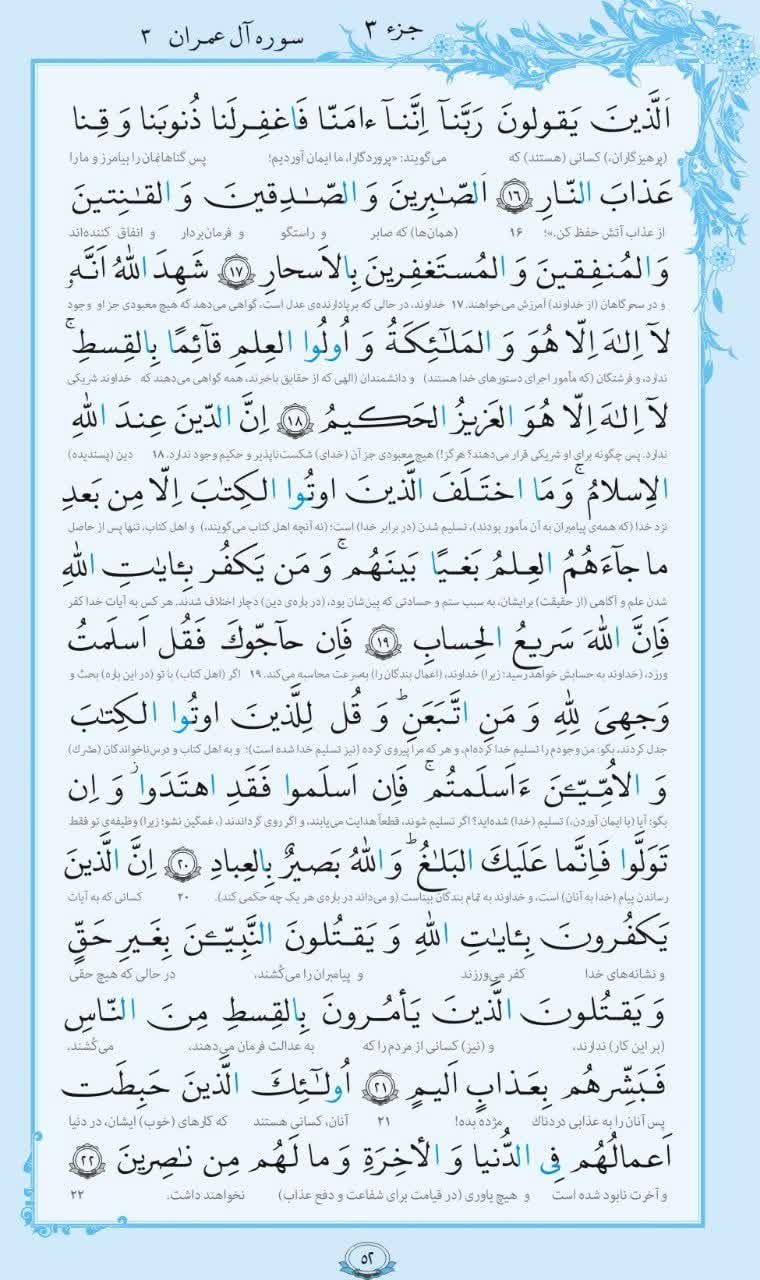 جزء ۳
سوره آل عمران ۳
اَلَّذينَ يَقولونَ رَبَّنآ اِنَّنآ ءامَنّا فَاغفِرلَنا ذُنوبَنا وَ قِنا
(پرهیزگاران،) کسانی (هستند) که می‌گویند: «پروردگارا، ما ایمان آوردیم؛ پس گناهانمان را بیامرز و ما را
عَذابَ النّارِ ۱۶ اَلصّابِرينَ وَ الصّادِقينَ وَ القانِتينَ
از عذاب آتش حفظ کن.»؛ ۱۶ (همان‌ها) که صابر و راستگو و فرمان‌بردار و انفاق کننده‌اند
وَ المُنفِقينَ وَ المُستَغفِرينَ بِالاَسحارِ ۱۷ شَهِدَ اللهُ اَنَّهُ
و در سحرگاهان (از خداوند) آمرزش می‌خواهند. ۱۷ خداوند، در حالی که برپادارنده‌ی عدل است، گواهی می‌دهد که هیچ معبودی جز او وجود
لآ اِلٰهَ اِلّا هُوَ وَ المَلٰئِكَةُ وَ اُولُوا العِلمِ قآئِمًا بِالقِسطِ ۚ
ندارد، و فرشتگان (که مأمور اجرای دستورهای خدا هستند) و دانشمندان (الهی که از حقایق باخبرند، همه گواهی می‌دهند که خداوند شریکی
لآ اِلٰهَ اِلّا هُوَ العَزيزُ الحَكيمُ ۱۸ اِنَّ الدّينَ عِندَ اللهِ
ندارد. پس چگونه برای او شریکی قرار می‌دهند؟ هرگز!) هیچ معبودی جز آن (خدای) شکست‌ناپذیر و حکیم وجود ندارد. ۱۸ دین (پسندیده)
الاِسلامُ ۚ وَ مَا اختَلَفَ الَّذينَ اوتُوا الكِتٰبَ اِلّا مِن بَعدِ
نزد خدا (که همه‌ی پیامبران به آن مأمور بودند)، تسلیم شدن (در برابر خدا) است؛ (نه آنچه اهل کتاب می‌گویند،) و اهل کتاب، تنها پس از حاصل
ما جآءَهُمُ العِلمُ بَغيًا بَينَهُم ۚ وَ مَن يَكفُر بِـٔاياتِ اللهِ
شدن علم و آگاهی (از حقیقت) برایشان، به سبب ستم و حسادتی که بین‌شان بود، (درباره‌ی دین) دچار اختلاف شدند. هر کس به آیات خدا کفر
فَاِنَّ اللهَ سَريعُ الحِسابِ ۱۹ فَاِن حآجّوكَ فَقُل اَسلَمتُ
ورزد، (خداوند به حسابش خواهد رسید؛ زیرا) خداوند، (اعمال بندگان را) به‌سرعت محاسبه می‌کند. ۱۹ اگر (اهل کتاب) با تو (در این باره) بحث و
وَجهِىَ لِلّٰهِ وَ مَنِ اتَّبَعَنِ ۗ وَ قُل لِلَّذينَ اوتُوا الكِتٰبَ
جدل کردند، بگو: من وجودم را تسلیم خدا کرده‌ام، و هر که مرا پیروی کرده (نیز تسلیم خدا شده است)؛ و به اهل کتاب و درس‌ناخواندگان (مشرک)
وَ الاُمِّيّـٖنَ ءَاَسلَمتُم ۚ فَاِن اَسلَموا فَقَدِ اهتَدَوا ۖ وَ اِن
بگو: آیا (با ایمان آوردن،) تسلیم (خدا) شده‌اید؟ اگر تسلیم شوند، قطعاً هدایت می‌یابند، و اگر روی گرداندند (، غمگین نشو؛ زیرا) وظیفه‌ی تو فقط
تَوَلَّوا فَاِنَّما عَلَيكَ البَلٰغُ ۗ وَ اللهُ بَصيرٌ بِالعِبادِ ۲۰ اِنَّ الَّذينَ
رساندن پیام (خدا به آنان) است، و خداوند به تمام بندگان بیناست (و می‌داند درباره‌ی هر یک چه حکمی کند). ۲۰ کسانی که به آیات
يَكفُرونَ بِـٔاياتِ اللهِ وَ يَقتُلونَ النَّبِيّـٖنَ بِغَيرِ حَقٍّ
و نشانه‌های خدا کفر می‌ورزند و پیامبران را می‌کُشند، در حالی که هیچ حقی
وَ يَقتُلونَ الَّذينَ يَأمُرونَ بِالقِسطِ مِنَ النّاسِ
(بر این کار) ندارند، و (نیز) کسانی از مردم را که به عدالت فرمان می‌دهند، می‌کُشند،
فَبَشِّرهُم بِعَذابٍ اَليمٍ ۲۱ اُولٰئِكَ الَّذينَ حَبِطَت
پس آنان را به عذابی دردناک مژده بده! ۲۱ آنان، کسانی هستند که کارهای (خوب) ایشان، در دنیا
اَعمالُهُم فِى الدُّنيا وَ الاٰخِرَةِ وَ ما لَهُم مِن ناصِرينَ ۲۲
و آخرت نابود شده است و هیچ یاوری (در قیامت برای شفاعت و دفع عذاب) نخواهند داشت. ۲۲
۵۲